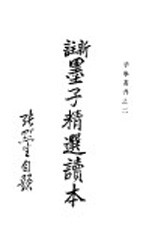 子學叢書之二
新註
墨子精選讀本
張默生自題